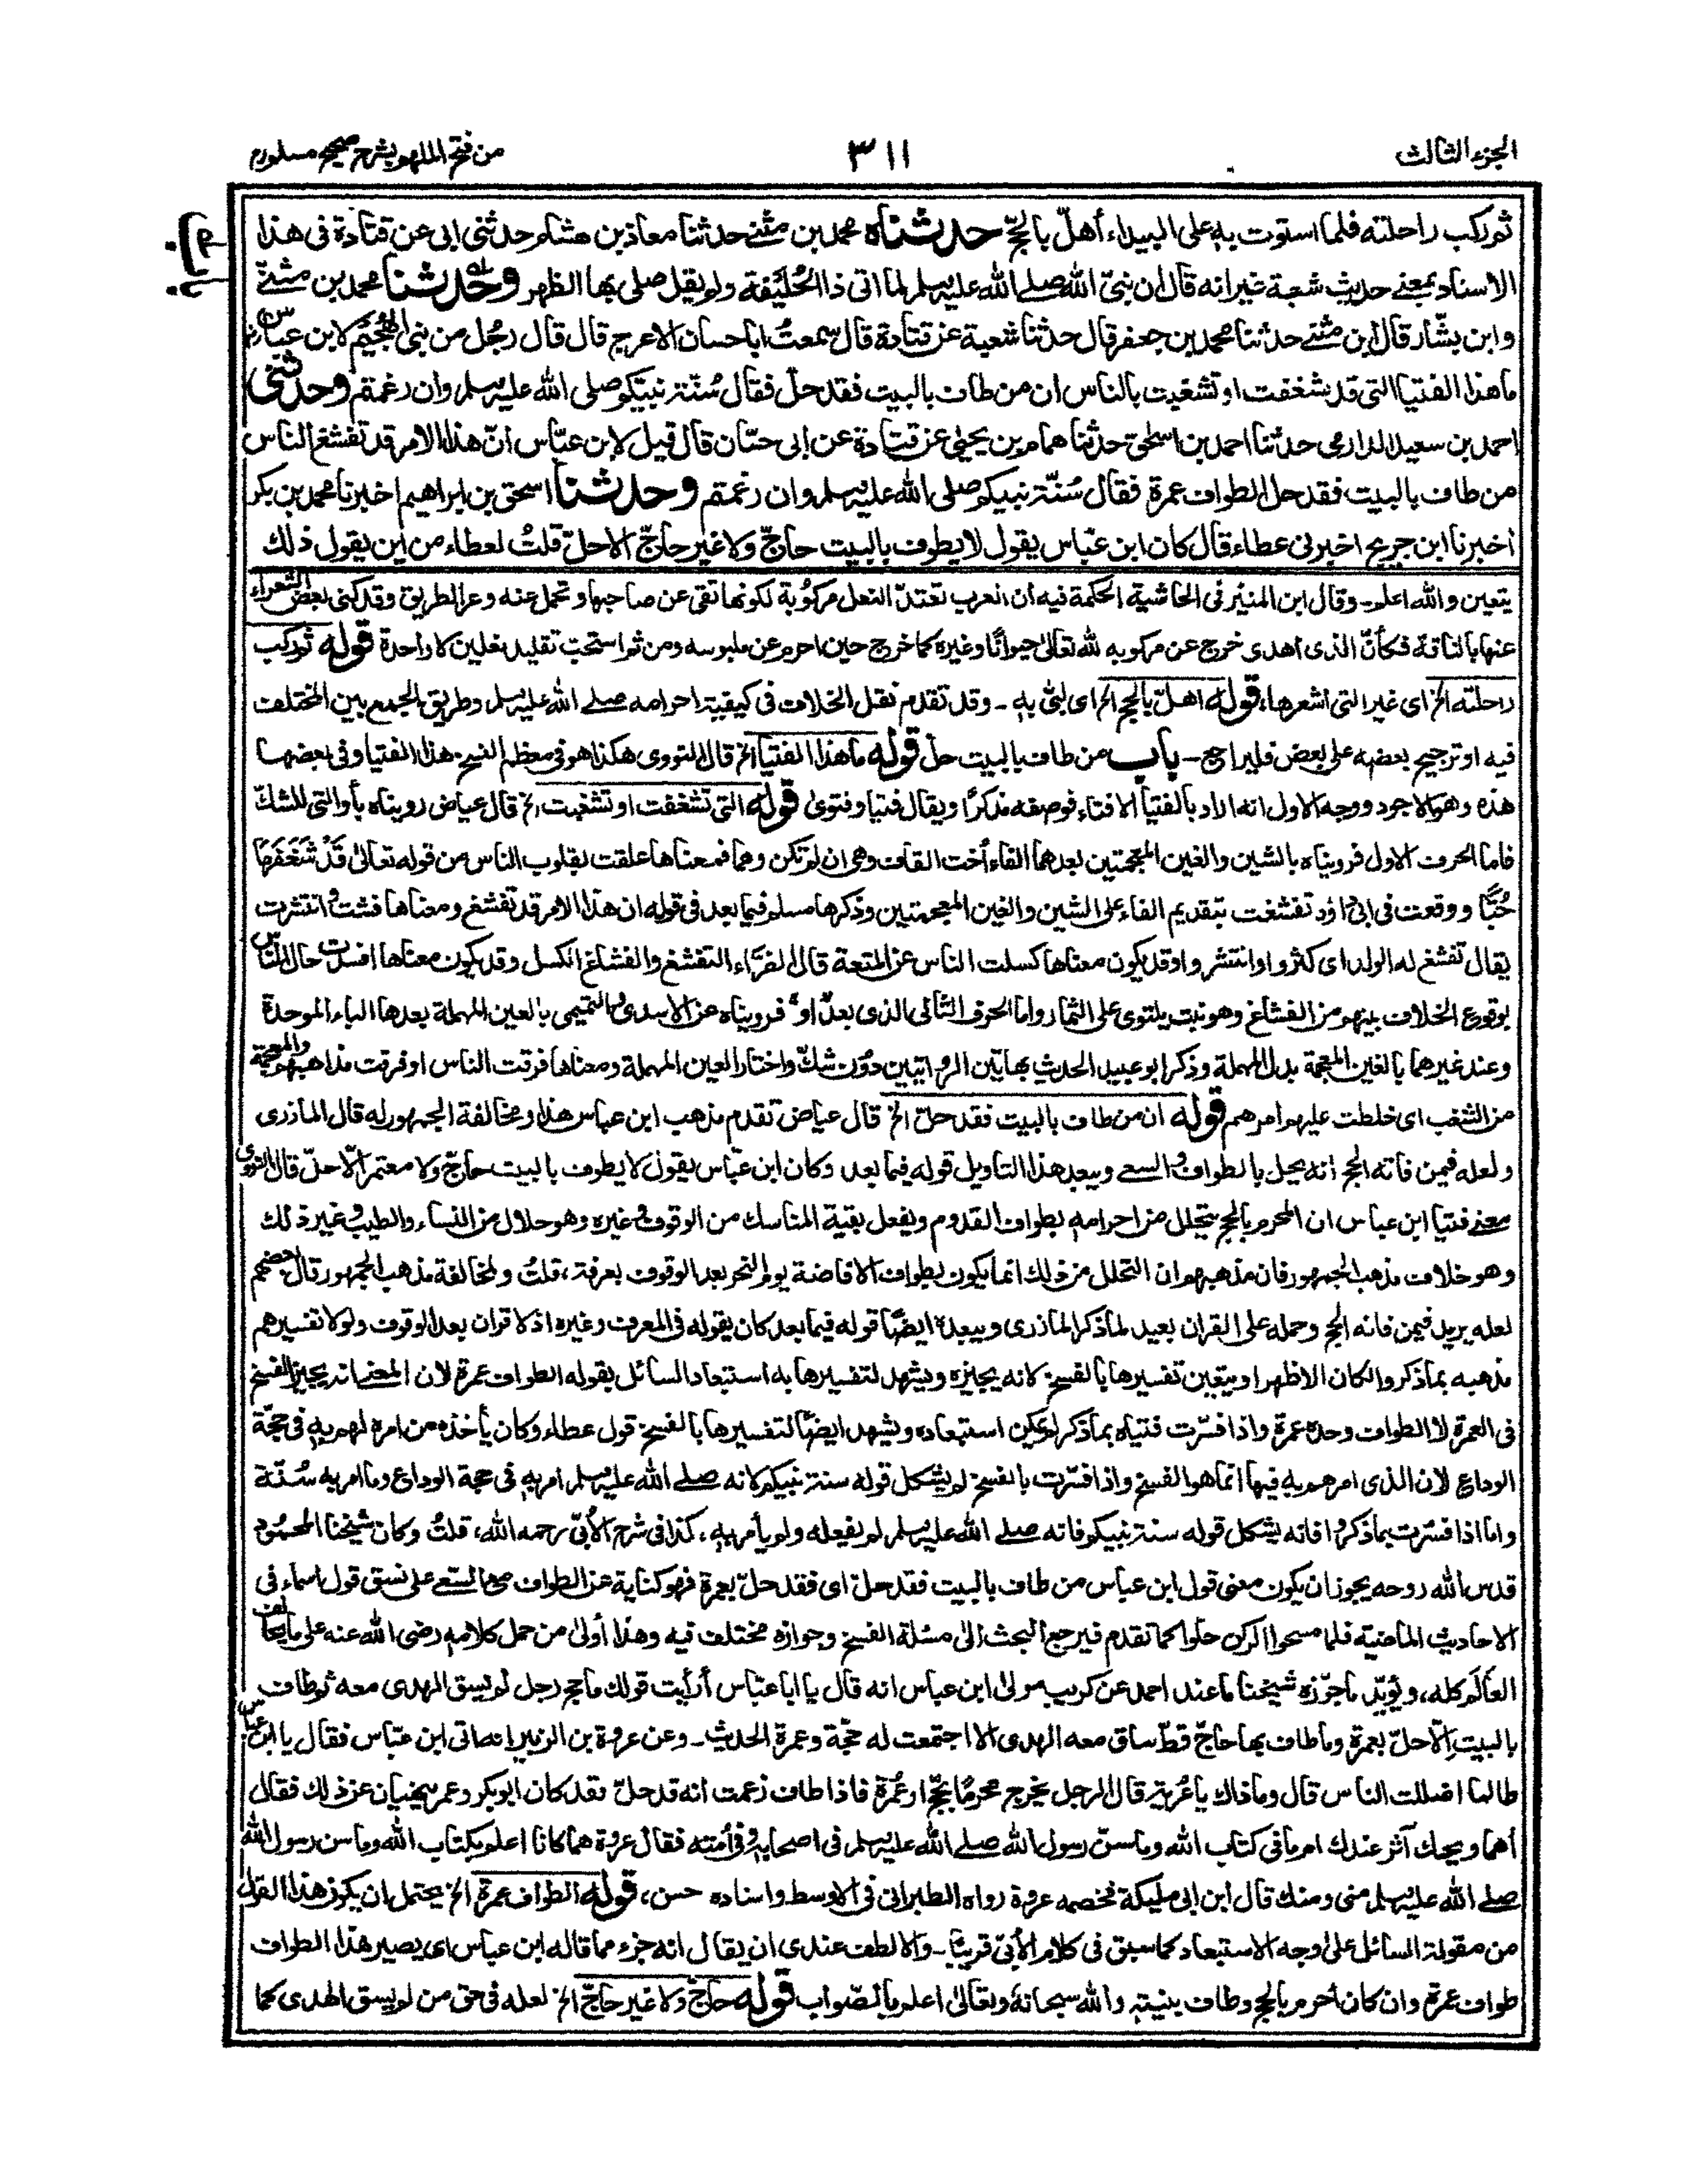 الجزء الثالث
٣١١
من فتح الملهم بشرح صحيح مسلم
باب
ثم ركب راحلته فلما استوت به على البيداء أهلّ بالحجّ حدثناه محمد بن مثنى حدثنا معاذ بن هشام حدثنى ابى عن قتادة فى هذا
الاسناد بمعنى حديث شعبة غير انه قال ان نبىّ الله صلى الله عليه وسلم لما اتى ذا الحُلَيْفة ولم يقل صلى بها الظهر وحدثنا محمد بن مثنّى
وابن بشّار قال ابن مثنى حدثنا محمد بن جعفر قال حدثنا شعبة عن قتادة قال سمعتُ ابا حسان الاعرج قال قال رجُل من بنى الهُجَيْم لابن عبّاس
ما هذا الفتيا التى قد تشغفت او تشغبت بالناس ان من طاف بالبيت فقد حلّ فقال سُنّة نبيّكم صلى الله عليه وسلم وان رغمتم وحدثنى
احمد بن سعيد الدارمى حدثنا احمد بن اسحٰق حدثنا همام بن يحيى عن قتادة عن ابى حسّان قال قيل لابن عبّاس انّ هذا الامر قد تفشغ الناس
من طاف بالبيت فقد حل الطواف عمرة فقال سُنّة نبيكم صلى الله عليه وسلم وان رغمتم وحدثنا اسحق بن ابراهيم اخبرنا محمد بن بكر
اخبرنا ابن جريج اخبرنى عطاء قال كان ابن عبّاس يقول لا يطوف بالبيت حاجّ ولا غير حاجّ الا حلّ قلتُ لعطاء من اين يقول ذلك
يتعين والله اعلم۔ وقال ابن المنير فى الحاشية الحكمة فيه ان العرب تعتدّ النعل مركوبة لكونها تقى عن صاحبها وتحمل عنه وعر الطريق وقد كنى بعض الشعراء
عنها بالناقة فكأنّ الذى اهدى خرج عن مركوبه لله تعالى حيوانًا وغيره كما خرج حين احرم عن ملبوسه ومن ثم استحب تقليد نعلين لا واحدة قوله ثم ركب
راحلته الخ اى غير التى اشعرها، قوله اهلّ بالحج الخ اى لبّى به۔ وقد تقدم نقل الخلاف فى كيفية احرامه صلى الله عليه وسلم وطريق الجمع بين المختلف
فيه او ترجيح بعضه على بعض فليراجع۔ باب من طاف بالبيت حلّ قوله ما هذا الفتيا الخ قال النووى هكذا هو فى معظم النسخ هذا الفتيا وفى بعضها
هذه وهو الاجود ووجه الاول انه اراد بالفتيا الافتاء فوصفه مذكرًا ويقال فتيا وفتوى قوله التى تشغفت او تشغبت الخ قال عياض رويناه بأو التى للشكّ
فاما الحرف الاول فرويناه بالشين والغين المعجمتين بعدهما الفاء أخت القاف وهى ان لم تكن وهما فمعناها علقت بقلوب الناس من قوله تعالى قَدْ شَغَفَهَا
حُبًّا ووقعت فى ابى داؤد تفشغت بتقديم الفاء على الشين والغين المعجمتين وذكرها مسلم فيما بعد فى قوله ان هذا الامر قد تفشغ ومعناها فشت وانتشرت
يقال تفشغ له الولد اى كثروا وانتشروا وقد يكون معناها كسلت الناس عن المتعة قال الفرّاء التفشغ والفشاغ الكسل وقد يكون معناها افسدت حال الناس
بوقوع الخلاف بينهم من الفشاغ وهو نبت يلتوى على الثمار واما الحرف الثانى الذى بعد او فرويناه عن الاسدى والتميمى بالعين المهملة بعدها الباء الموحدة
وعند غيرهما بالغين المعجمة بدل المهملة وذكر ابو عبيد الحديث بهاتين الروايتين دون شكّ واختار العين المهملة ومعناها فرقت الناس او فرقت مذاهبهم والمعجمة
من الشغب اى خلطت عليهم امرهم قوله ان من طاف بالبيت فقد حلّ الخ قال عياض تقدم مذهب ابن عباس هذا ومخالفة الجمهور له قال المازرى
ولعله فيمن فاته الحج انه يحل بالطواف والسعى ويبعد هذا التاويل قوله فيما بعد وكان ابن عبّاس يقول لا يطوف بالبيت حاجّ ولا معتمر الّا حلّ قال النووى
معنى فتيا ابن عباس ان المحرم بالحج يتحلل من احرامه بطواف القدوم ويفعل بقية المناسك من الوقوف وغيره وهو حلال من النساء والطيب وغير ذلك
وهو خلاف مذهب الجمهور فان مذهبهم ان التحلل من ذلك انما يكون بطواف الافاضة يوم النحر بعد الوقوف بعرفة، قلتُ ولمخالفة مذهب الجمهور قال بعضهم
لعله يريد فيمن فاته الحج وحمله على القران بعيد لما ذكر المازرى ويبعده ايضًا قوله فيما بعد كان يقوله فى المعرف وغيره اذ لا قران بعد الوقوف ولولا تفسيرهم
مذهبه بما ذكروا لكان الاظهر او يتعين تفسيرها بالفسخ لانه يجيزه ويشهد لتفسيرها به استبعاد السائل بقوله الطواف عمرة لان المعنى انه يجيز الفسخ
فى العمرة لا الطواف وحده عمرة واذا فسّرت فتياه بما ذكر لم يكن استبعاده ويشهد ايضًا لتفسيرها بالفسخ قول عطاء وكان يأخذه من امره لهم به فى حجّة
الوداع لان الذى امرهم به فيها انما هو الفسخ واذا فسّرت بالفسخ لم يشكل قوله سنة نبيكم لانه صلى الله عليه وسلم امر به فى حجة الوداع وما امر به سُنّة
واما اذا فسّرت بما ذكروا فانه يشكل قوله سنة نبيكم فانه صلى الله عليه وسلم لم يفعله ولم يأمر به، كذا فى شرح الأُبىّ رحمه الله، قلتُ وكان شيخنا المحمود
قدس الله روحه يجوز ان يكون معنى قول ابن عباس من طاف بالبيت فقد حلّ اى فقد حلّ بعمرة فهو كناية عن الطواف مع السعى على نسق قول اسماء فى
الاحاديث الماضية فلما مسحوا الركن حلوا كما تقدم فيرجع البحث الى مسئلة الفسخ وجوازه مختلف فيه وهذا أولى من حمل كلامه رضى الله عنه على ما يخالف
العالَم كله، ويؤيّد ما جوّزه شيخنا ما عند احمد عن كريب مولى ابن عباس انه قال يا ابا عبّاس أرأيت قولك ما حج رجل لم يسق الهدى معه ثم طاف
بالبيت الّا حلّ بعمرة وما طاف بها حاجّ قطّ ساق معه الهدى الا اجتمعت له حجّة وعمرة الحديث۔ وعن عروة بن الزبير انه اتى ابن عبّاس فقال يا ابن عباس
طالما اضللت الناس قال وما ذاك يا عُريّة قال الرجل يخرج محرمًا بحجّ او عُمرة فاذا طاف زعمت انه قد حلّ فقد كان ابو بكر وعمر ينهيان عن ذلك فقال
أهما ويحك آثر عندك ام ما فى كتاب الله وما سنّ رسول الله صلى الله عليه وسلم فى اصحابه وفى أمته فقال عروة هما كانا اعلم بكتاب الله وما سن رسول الله
صلى الله عليه وسلم منى ومنك قال ابن ابى مليكة فخصمه عروة رواه الطبرانى فى الاوسط واسناده حسن، قوله الطواف عمرة الخ يحتمل ان يكون هذا القول
من مقولة السائل على وجه الاستبعاد كما سبق فى كلام الأُبىّ قريبًا۔ والالطف عندى ان يقال انه جزء مما قاله ابن عباس اى يصير هذا الطواف
طواف عمرة وان كان أحرم بالحج وطاف بنيته والله سبحانه وتعالى اعلم بالصواب قوله حاجّ ولا غير حاجّ الخ لعله فى حق من لم يسق الهدى كما